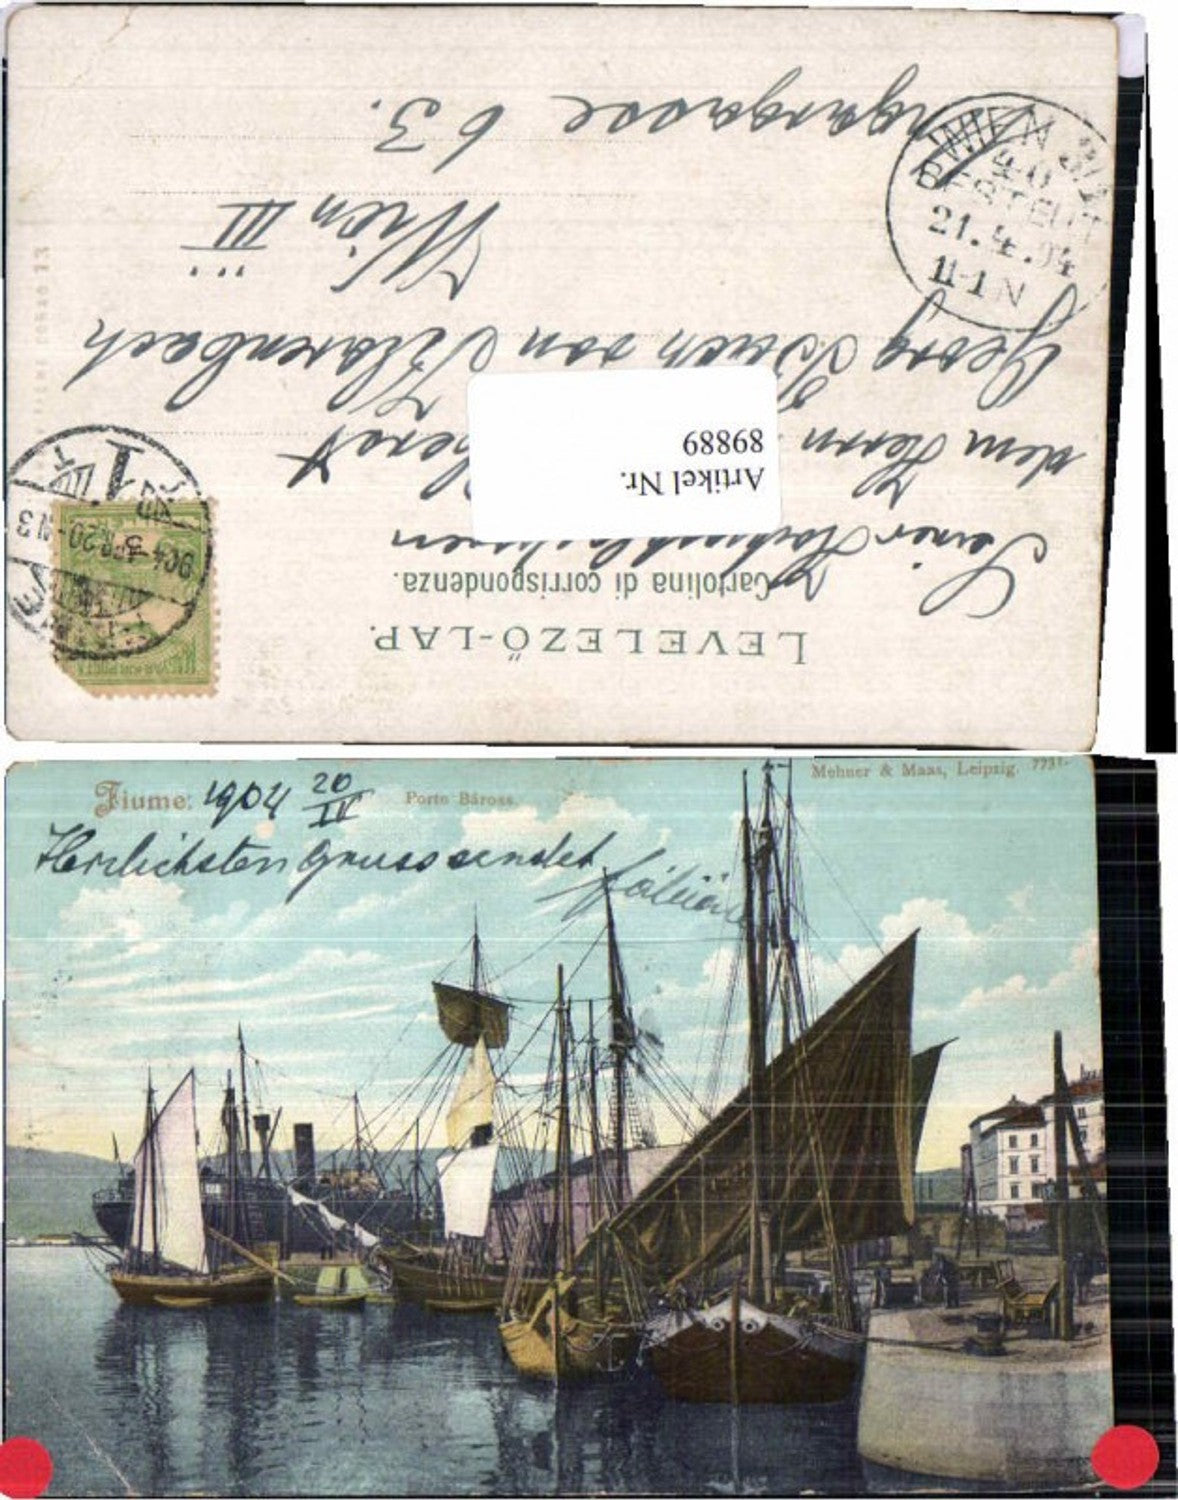 LEVELEZŐ-LAP.
Cartolina di corrispondenza.
Seiner Hochwohlgeboren
dem Herrn
Georg Buch von
Wien III
Ungargasse 63.
Artikel Nr.
89889
WIEN 3/1
BESTELLT
21.4.04
11-1 N
904 APR 20
Fiume: 1904 20/IV Porto Báross.
Mehner & Maas, Leipzig. 7731.
Herzlichsten Gruss sendet